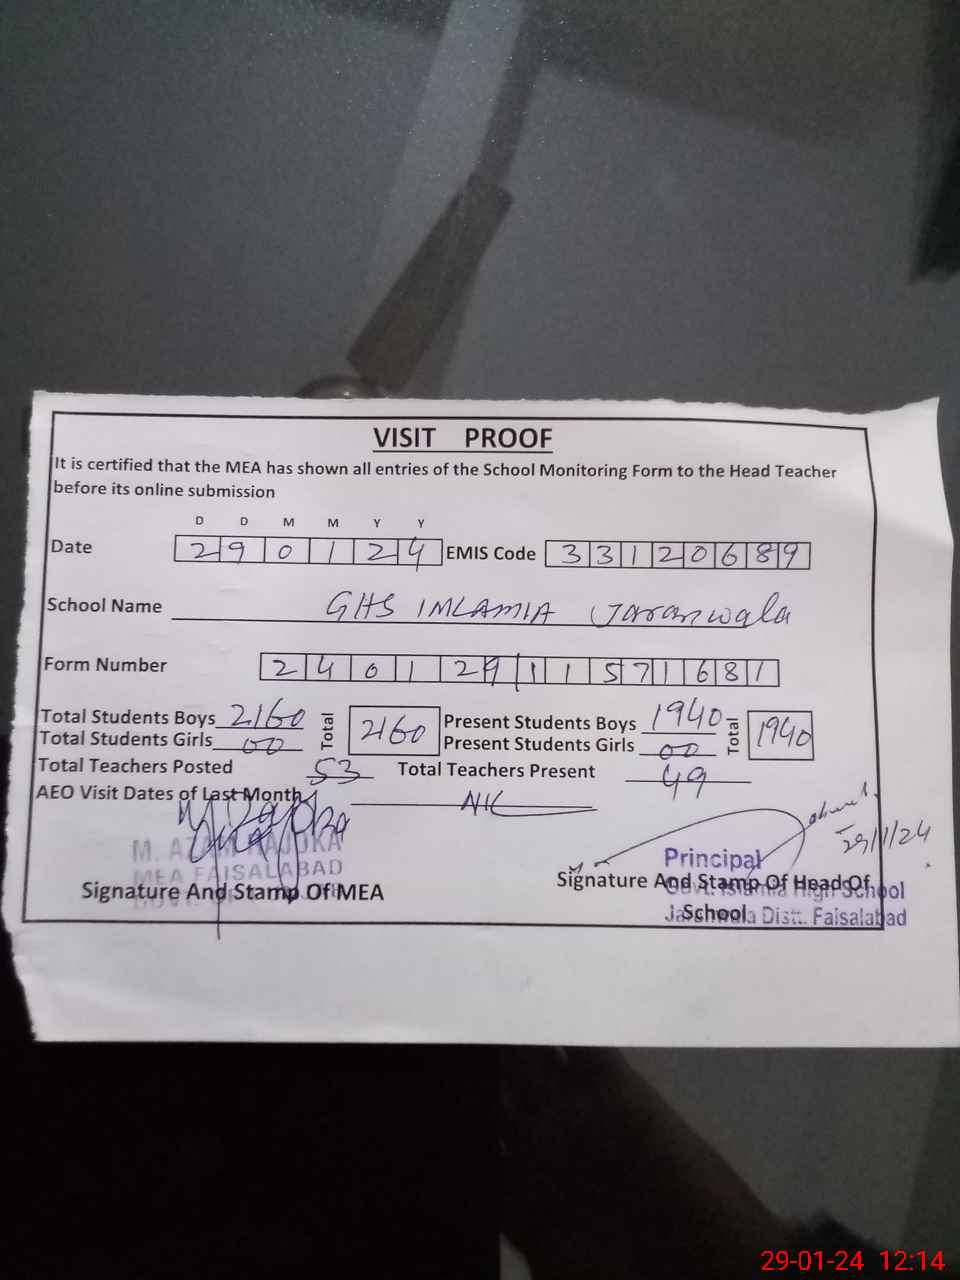 VISIT PROOF
It is certified that the MEA has shown all entries of the School Monitoring Form to the Head Teacher
before its online submission
D D M M Y Y
Date 2 9 0 1 2 4 EMIS Code 3 3 1 2 0 6 8 9
School Name GHS IMLAMIA Jaranwala
Form Number 2 4 0 1 2 9 1 1 5 7 1 6 8 1
Total Students Boys 2160 Total 2160 Present Students Boys 1940 Total 1940
Total Students Girls 00 Present Students Girls 00
Total Teachers Posted 53 Total Teachers Present 49
AEO Visit Dates of Last Month NIL
29/1/24
M. AZAM RAJOKA
MEA FAISALABAD
Signature And Stamp Of MEA
Principal
Signature And Stamp Of Head Of
School
Govt. Islamia High School
Jaranwala Distt. Faisalabad
29-01-24 12:14